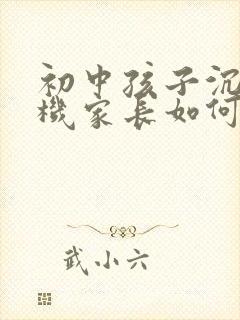 初中孩子沉
機家長如何
武小六